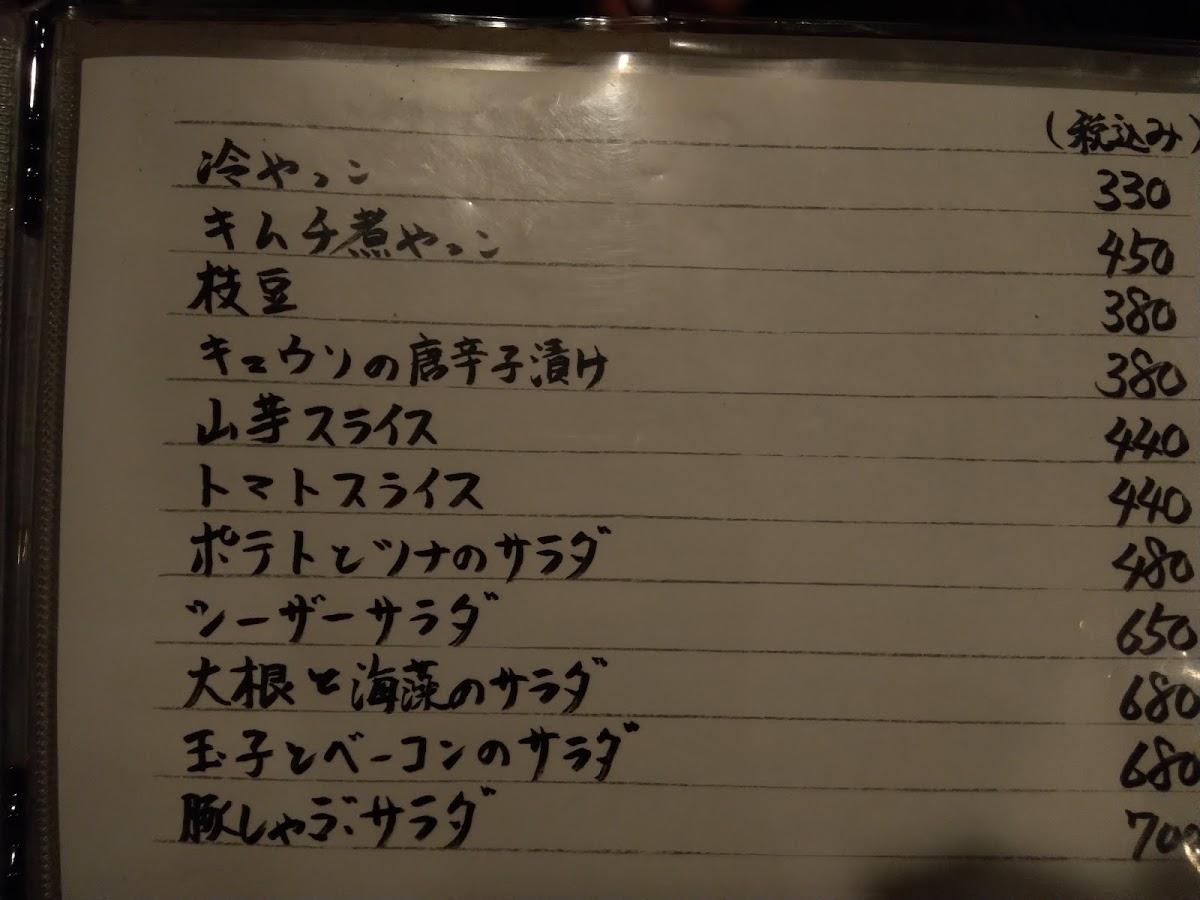 (税込み)
冷やっこ 330
キムチ煮やっこ 450
枝豆 380
キュウリの唐辛子漬け 380
山芋スライス 440
トマトスライス 440
ポテトとツナのサラダ 480
シーザーサラダ 650
大根と海藻のサラダ 680
玉子とベーコンのサラダ 680
豚しゃぶサラダ 700